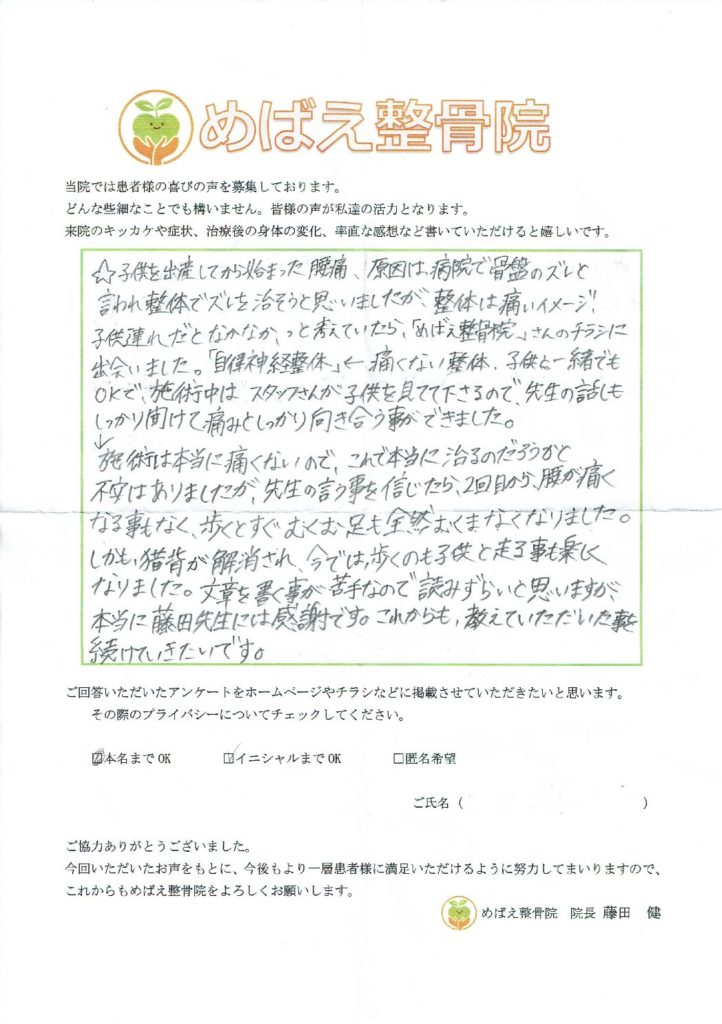 めばえ整骨院
当院では患者様の喜びの声を募集しております。
どんな些細なことでも構いません。皆様の声が私達の活力となります。
来院のキッカケや症状、治療後の身体の変化、率直な感想など書いていただけると嬉しいです。
☆子供を出産してから始まった腰痛、原因は、病院で骨盤のズレと
言われ整体でズレを治そうと思いましたが、整体は痛いイメージ、
子供連れだとなかなか、っと考えていたら、「めばえ整骨院」さんのチラシに
出会いました。「自律神経整体」←痛くない整体、子供と一緒でも
OKで、施術中はスタッフさんが子供を見てて下さるので、先生の話しも
しっかり聞けて痛みとしっかり向き合う事ができました。
↓
施術は本当に痛くないので、これで本当に治るのだろうかと
不安はありましたが、先生の言う事を信じたら、2回目から、腰が痛く
なる事もなく、歩くとすぐむくむ足も全然むくまなくなりました。
しかも、猫背が解消され、今では、歩くのも子供と走る事も楽しく
なりました。文章を書く事が苦手なので読みずらいと思いますが、
本当に藤田先生には感謝です。これからも、教えていただいた事を
続けていきたいです。
ご回答いただいたアンケートをホームページやチラシなどに掲載させていただきたいと思います。
その際のプライバシーについてチェックしてください。
☑本名までOK ☑イニシャルまでOK □匿名希望
ご氏名（ ）
ご協力ありがとうございました。
今回いただいたお声をもとに、今後もより一層患者様に満足いただけるように努力してまいりますので、
これからもめばえ整骨院をよろしくお願いします。
めばえ整骨院 院長 藤田 健